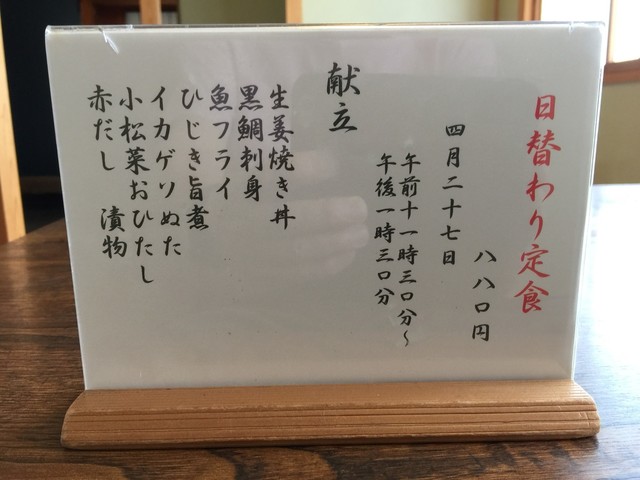 日替わり定食
八八〇円
四月二十七日
午前十一時三〇分〜
午後一時三〇分
献立
生姜焼き丼
黒鯛刺身
魚フライ
ひじき旨煮
イカゲソぬた
小松菜おひたし
赤だし 漬物